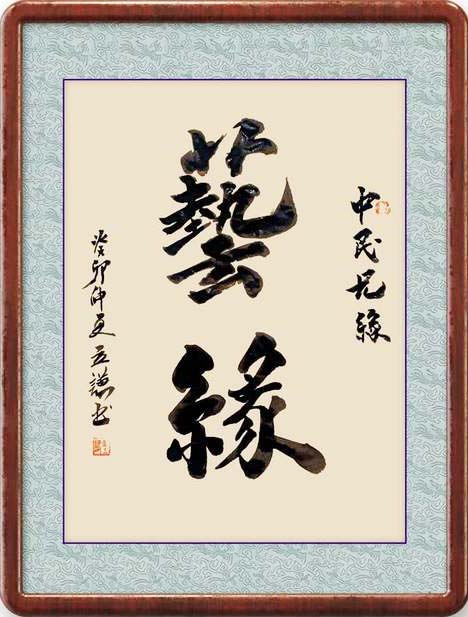 中民兄緣
藝緣
癸卯仲夏謙书